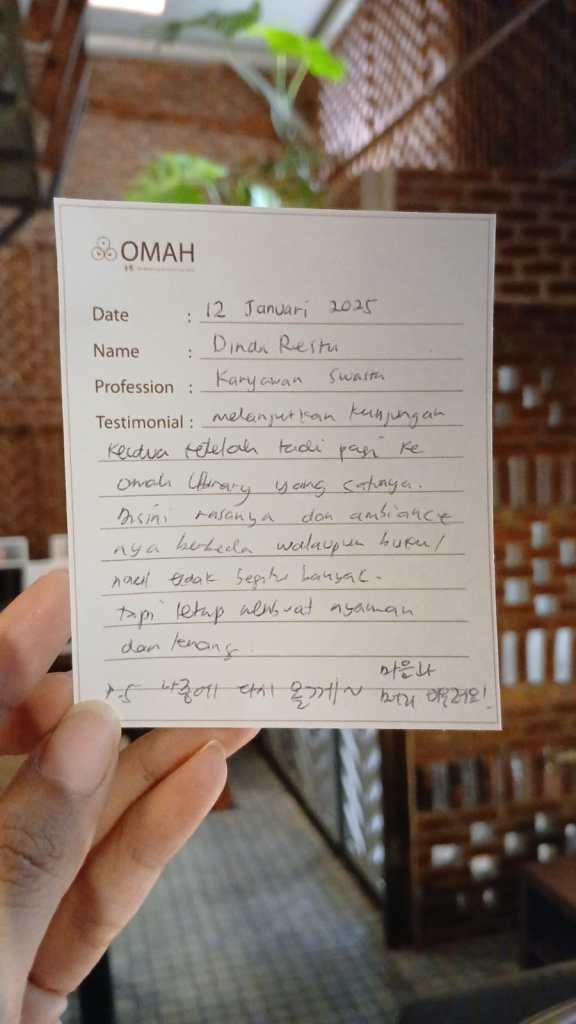 OMAH
Date : 12 Januari 2025
Name : Dinda Restu
Profession : Karyawan Swasta
Testimonial : melanjutkan kunjungan
kedua setelah tadi pagi ke
omah library yang satunya.
Disini rasanya dan ambiance
nya berbeda walaupun buku/
novel tidak begitu banyak.
tapi tetap membuat nyaman
dan tenang.
나중에 다시 올게~ 마음과